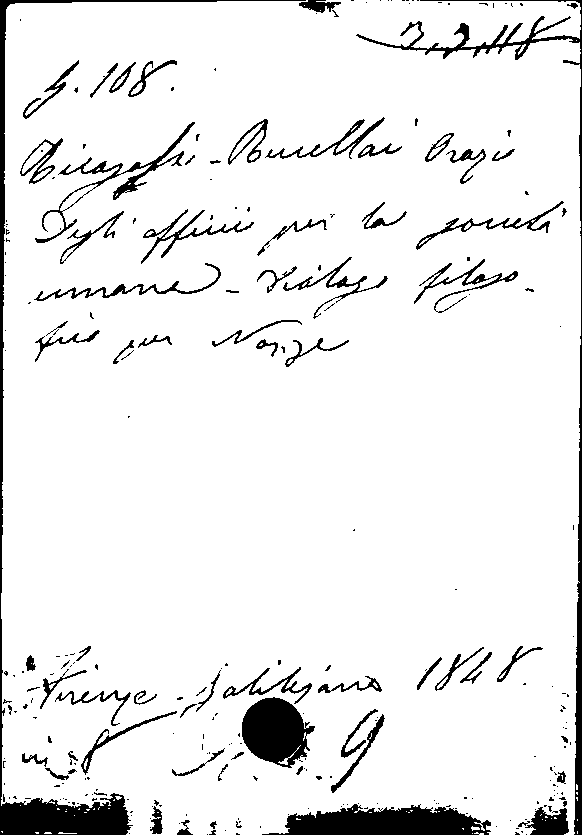 3.3.118
G. 108.
Ricasoli - Rucellai Orazio
Degli officii per la società
umana - Dialogo filoso-
fico per Nozze
Firenze - Galilejana 1848
in 8
9